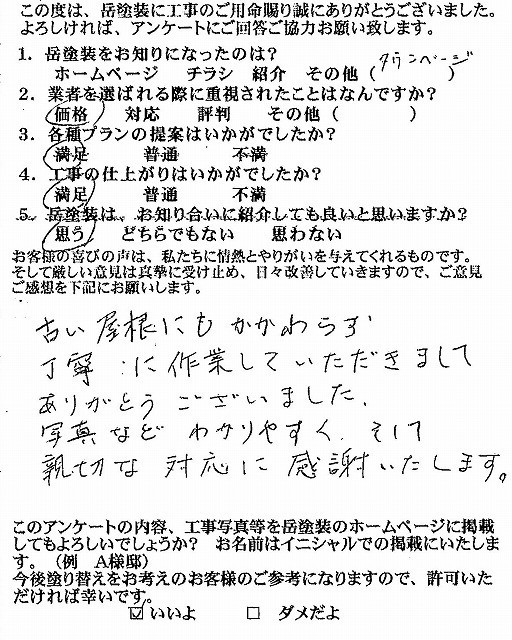 この度は、岳塗装に工事のご用命賜り誠にありがとうございました。
よろしければ、アンケートにご回答ご協力お願い致します。
1．岳塗装をお知りになったのは？
ホームページ　チラシ　紹介　その他（タウンページ）
2．業者を選ばれる際に重視されたことはなんですか？
価格　対応　評判　その他（　　　　）
3．各種プランの提案はいかがでしたか？
満足　普通　不満
4．工事の仕上がりはいかがでしたか？
満足　普通　不満
5．岳塗装は、お知り合いに紹介しても良いと思いますか？
思う　どちらでもない　思わない
お客様の喜びの声は、私たちに情熱とやりがいを与えてくれるものです。
そして厳しい意見は真摯に受け止め、日々改善していきますので、ご意見
ご感想を下記にお願いします。
古い屋根にもかかわらず
丁寧に作業していただきまして
ありがとうございました。
写真などわかりやすく、そして
親切な対応に感謝いたします。
このアンケートの内容、工事写真等を岳塗装のホームページに掲載
してもよろしいでしょうか？　お名前はイニシャルでの掲載にいたしま
す。（例　A様邸）
今後塗り替えをお考えのお客様のご参考になりますので、許可いた
だければ幸いです。
☑いいよ　□ ダメだよ